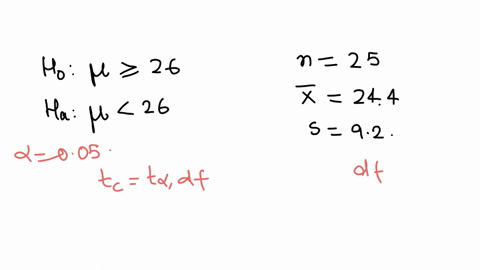 H₀: μ ≥ 26
Hₐ: μ < 26
α = 0.05
t_c = t_α, df
n = 25
x̄ = 24.4
s = 9.2.
df